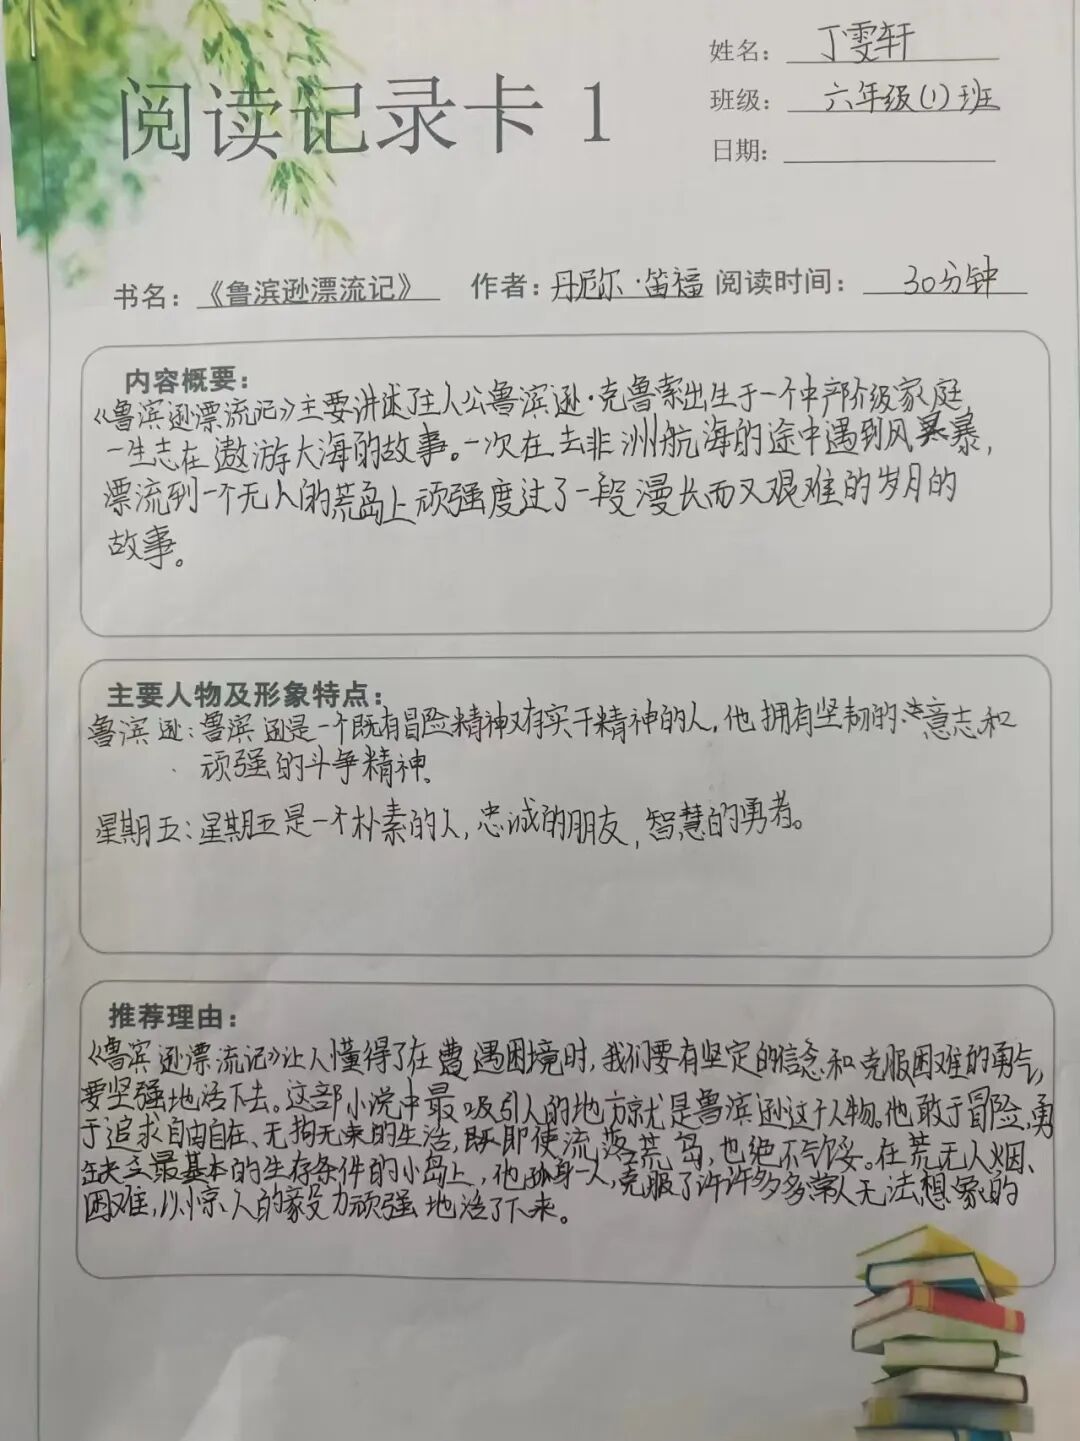 阅读记录卡 1
姓名： 丁雯轩
班级： 六年级(1)班
日期：
书名：《鲁滨逊漂流记》 作者：丹尼尔·笛福 阅读时间： 30分钟
内容概要：
《鲁滨逊漂流记》主要讲述了主人公鲁滨逊·克鲁索出生于一个中产阶级家庭，
一生志在遨游大海的故事。一次在去非洲航海的途中遇到风暴，
漂流到一个无人的荒岛上顽强度过了一段漫长而又艰难的岁月的
故事。
主要人物及形象特点：
鲁滨逊：鲁滨逊是一个既有冒险精神又有实干精神的人，他拥有坚韧的意志和
顽强的斗争精神.
星期五：星期五是一个朴素的人，忠诚的朋友，智慧的勇者。
推荐理由：
《鲁滨逊漂流记》让人懂得了在遭遇困境时，我们要有坚定的信念和克服困难的勇气，
要坚强地活下去。这部小说中最吸引人的地方就是鲁滨逊这个人物。他敢于冒险，勇
于追求自由自在、无拘无束的生活，即使流落荒岛，也绝不气馁。在荒无人烟、
缺乏最基本的生存条件的小岛上，他孤身一人，克服了许许多多常人无法想象的
困难，以惊人的毅力顽强地活了下来。